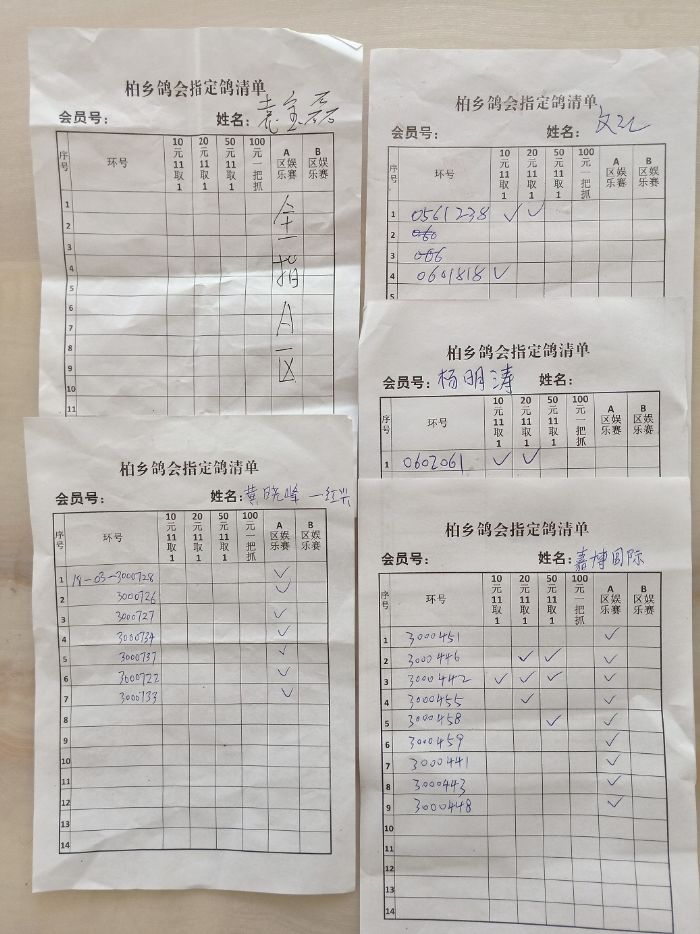 柏乡鸽会指定鸽清单
会员号： 姓名：袁宝磊
序号 环号 10元11取1 20元11取1 50元11取1 100元一把抓 A区娱乐赛 B区娱乐赛
1
2
3
4
5
6
7
8
9
10
11
全指A区
柏乡鸽会指定鸽清单
会员号： 姓名：
序号 环号 10元11取1 20元11取1 50元11取1 100元一把抓 A区娱乐赛 B区娱乐赛
1 0561238 ✓ ✓
2
3
4 0601818 ✓
5
柏乡鸽会指定鸽清单
会员号：杨明涛 姓名：
序号 环号 10元11取1 20元11取1 50元11取1 100元一把抓 A区娱乐赛 B区娱乐赛
1 0602061 ✓ ✓
柏乡鸽会指定鸽清单
会员号： 姓名：黄晓峰 一红兴
序号 环号 10元11取1 20元11取1 50元11取1 100元一把抓 A区娱乐赛 B区娱乐赛
1 19-03-3000728 ✓
2 3000726 ✓
3 3000727 ✓
4 3000734 ✓
5 3000737 ✓
6 3000722 ✓
7 3000733 ✓
8
9
10
11
12
13
14
柏乡鸽会指定鸽清单
会员号： 姓名：嘉博国际
序号 环号 10元11取1 20元11取1 50元11取1 100元一把抓 A区娱乐赛 B区娱乐赛
1 3000451 ✓
2 3000446 ✓ ✓ ✓
3 3000442 ✓ ✓ ✓ ✓
4 3000455 ✓ ✓
5 3000458 ✓ ✓
6 3000459 ✓
7 3000441 ✓
8 3000443 ✓
9 3000448 ✓
10
11
12
13
14